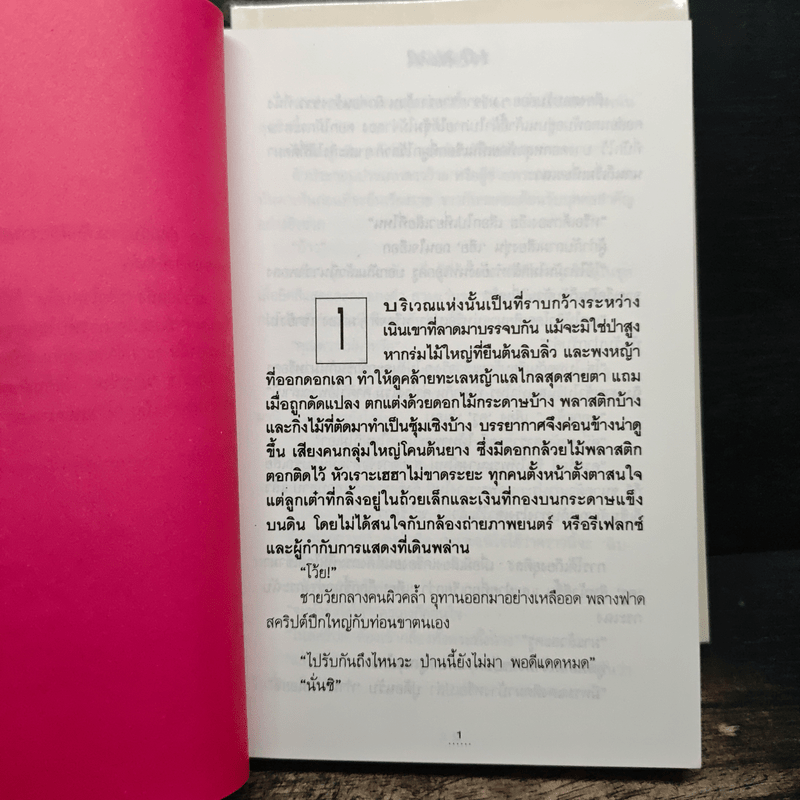 1
บริเวณแห่งนั้นเป็นที่ราบกว้างระหว่าง
เนินเขาที่ลาดมาบรรจบกัน แม้จะมิใช่ป่าสูง
หากร่มไม้ใหญ่ที่ยืนต้นลิบลิ่ว และพงหญ้า
ที่ออกดอกเลา ทำให้ดูคล้ายทะเลหญ้าแลไกลสุดสายตา แถม
เมื่อถูกดัดแปลง ตกแต่งด้วยดอกไม้กระดาษบ้าง พลาสติกบ้าง
และกิ่งไม้ที่ตัดมาทำเป็นซุ้มเชิงบ้าง บรรยากาศจึงค่อนข้างน่าดู
ขึ้น เสียงคนกลุ่มใหญ่โคนต้นยาง ซึ่งมีดอกกล้วยไม้พลาสติก
ตอกติดไว้ หัวเราะเฮฮาไม่ขาดระยะ ทุกคนตั้งหน้าตั้งตาสนใจ
แต่ลูกเต๋าที่กลิ้งอยู่ในถ้วยเล็กและเงินที่กองบนกระดาษแข็ง
บนดิน โดยไม่ได้สนใจกับกล้องถ่ายภาพยนตร์ หรือรีเฟลกซ์
และผู้กำกับการแสดงที่เดินพล่าน
“โว้ย!”
ชายวัยกลางคนผิวคล้ำ อุทานออกมาอย่างเหลืออด พลางฟาด
สคริปต์ปึกใหญ่กับท่อนขาตนเอง
“ไปรับกันถึงไหนวะ ป่านนี้ยังไม่มา พอดีแดดหมด”
“นั่นซิ”
1